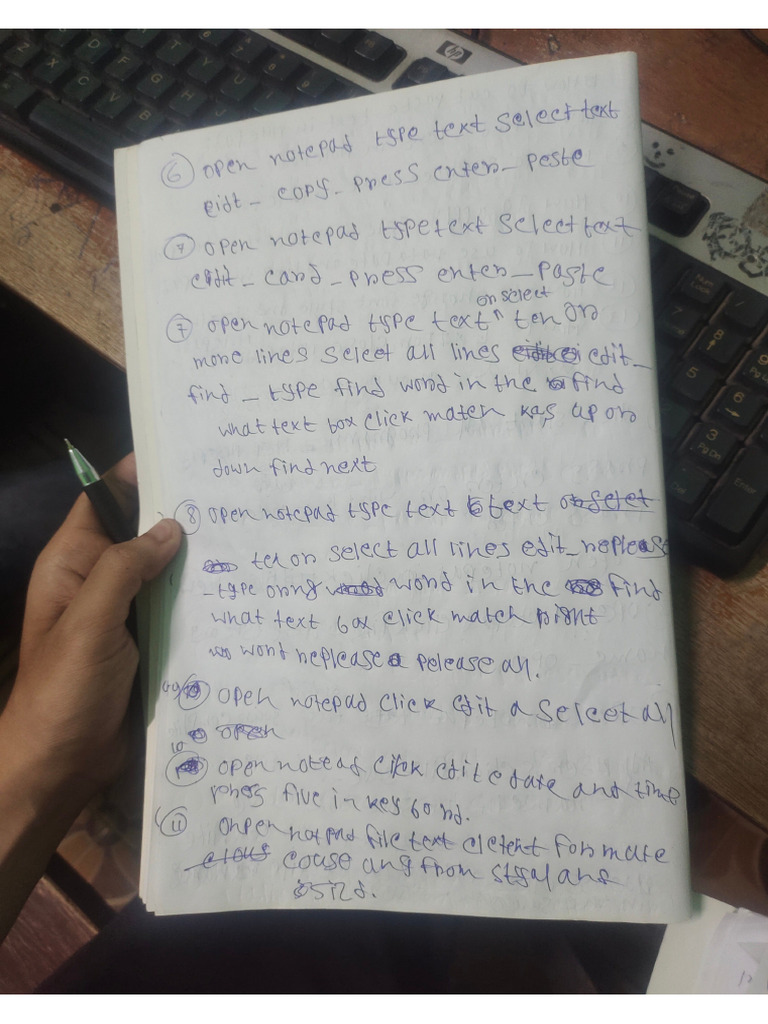 6 open notepad type text select text
eidt - copy - press enter - peste
7 open notepad type text select text
edit - card - press enter - paste
on select
7 open notepad type text ten or
more lines select all lines edit -
find - type find word in the find
what text box click match kas up or
down find next
8 open notepad type text text
ten or select all lines edit - neplease
- type word in the find
what text box click match right
word neplease pelease all.
open notepad click edit a select all
10
open notead click edit e date and time
press five in key bo rd.
11 onpen notpad file text formate
couse any from stgal ans
sizd.
hp
Num Lock
7
8
9
Pg Up
5
6
3
Pg Dn
Enter
Del